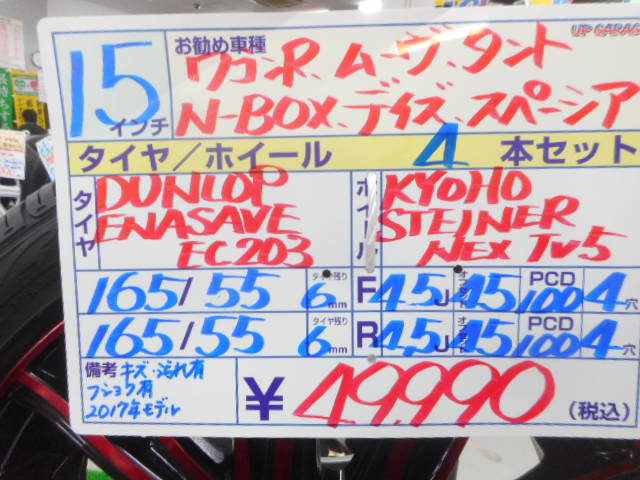 UP GARAG
15インチ
お勧め車種
ワゴンR、ムーヴ、タント
N-BOX、デイズ、スペーシア
タイヤ／ホイール 4 本セット
タイヤ
DUNLOP
ENASAVE
EC203
ホイール
KYOHO
STEINER
NEX TV5
165/55 タイヤ残り 6mm F 4.5J オフセット 45 PCD 100 4穴
165/55 タイヤ残り 6mm R 4.5J オフセット 45 PCD 100 4穴
備考 キズ・汚れ有
フショク有
2017年モデル
¥49,990 (税込)